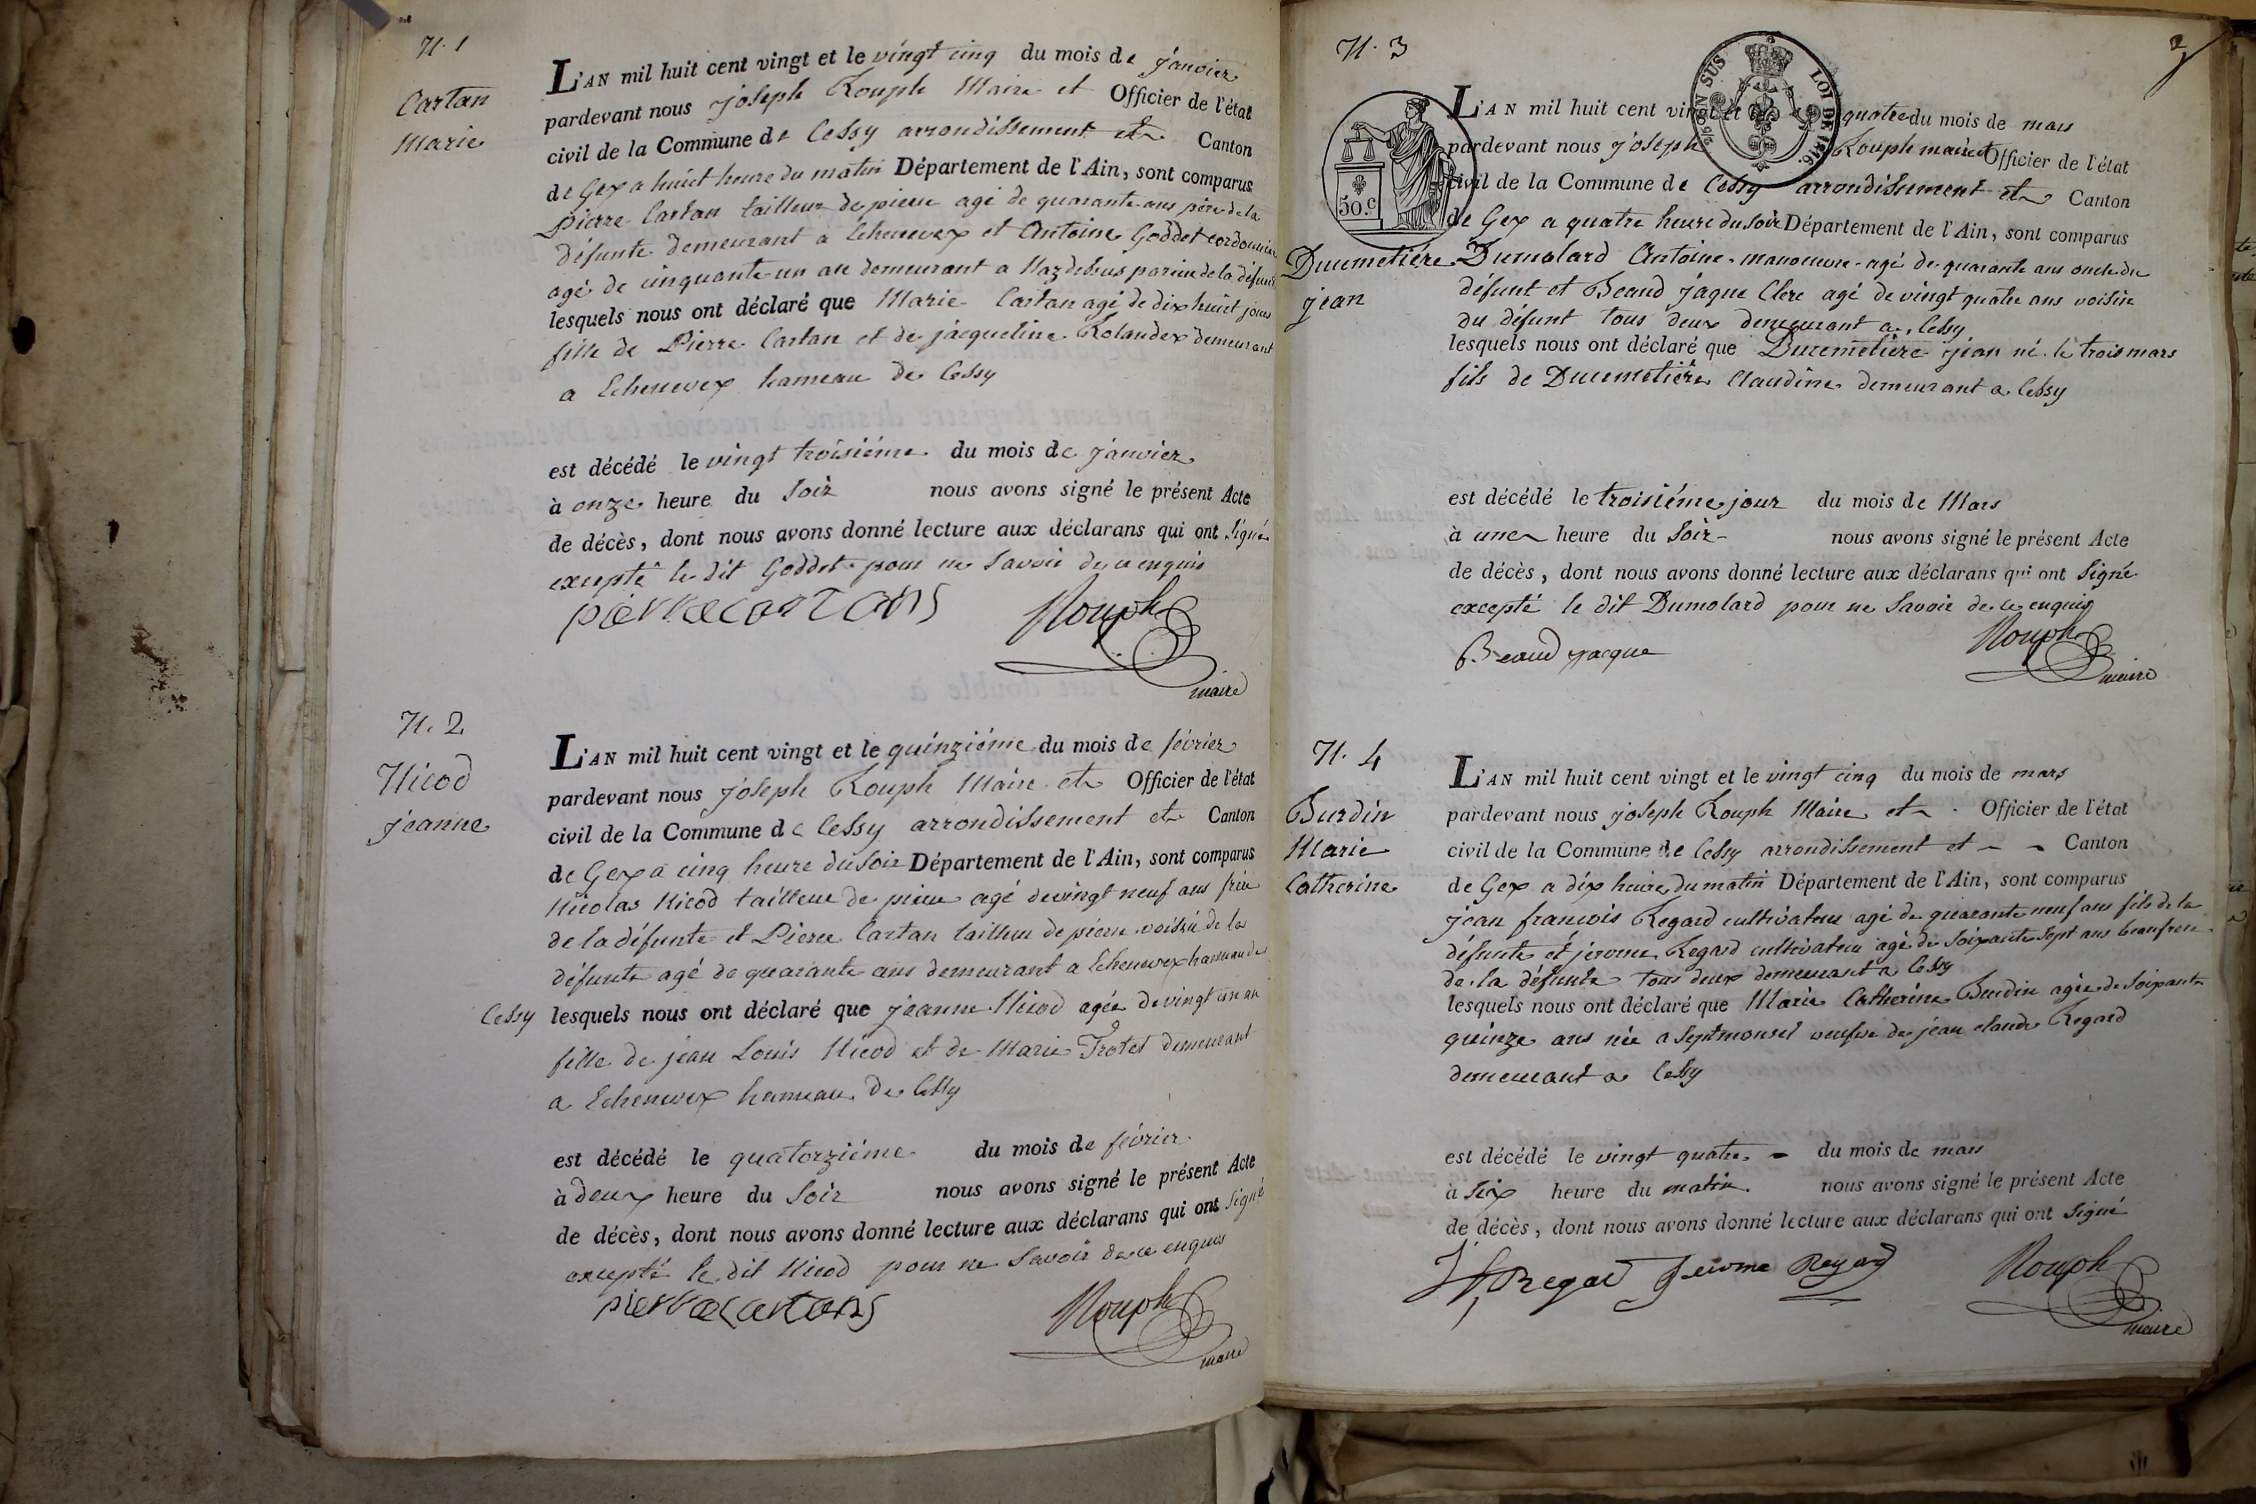 N. 1
Cartan
Marie
L'AN mil huit cent vingt et le vingt cinq du mois de janvier
pardevant nous joseph Rouph Maire et Officier de l'état
civil de la Commune de Cessy arrondissement et Canton
de Gex a huit heure du matin Département de l'Ain, sont comparus
pierre Cartan tailleur de pierre agé de quarante ans père de la
défunte demeurant a Echenevex et Antoine Goddet cordonnier
agé de cinquante un an demeurant a Naz dessus parin de la défunte
lesquels nous ont déclaré que Marie Cartan agé de dix huit jours
fille de Pierre Cartan et de jacqueline Rolandex demeurant
a Echenevex hameau de Cessy
est décédé le vingt troisiéme du mois de janvier
à onze heure du soir nous avons signé le présent Acte
de décès, dont nous avons donné lecture aux déclarans qui ont signé
excepté le dit Goddet pour ne savoir de ce enquis
pierre cartans
Rouph
maire
N. 2
Nicod
jeanne
L'AN mil huit cent vingt et le quinziéme du mois de février
pardevant nous joseph Rouph Maire et Officier de l'état
civil de la Commune de Cessy arrondissement et Canton
de Gex a cinq heure du soir Département de l'Ain, sont comparus
Nicolas Nicod tailleur de pierre agé de vingt neuf ans frère
de la défunte et Pierre Cartan tailleur de pierre voisin de la
défunte agé de quarante ans demeurant a Echenevex hameau de
Cessy lesquels nous ont déclaré que jeanne Nicod agée de vingt un an
fille de jean Louis Nicod et de Marie Trotet demeurant
a Echenevex hameau de Cessy
est décédé le quatorziéme du mois de février
à deux heure du soir nous avons signé le présent Acte
de décès, dont nous avons donné lecture aux déclarans qui ont signé
excepté le dit Nicod pour ne savoir de ce enquis
pierre cartans
Rouph
maire
N. 3
2
SUS
LOI DE 1816.
50.c
Ducimetière
jean
L'AN mil huit cent vingt et le quatre du mois de mars
pardevant nous joseph Rouph maire et Officier de l'état
civil de la Commune de Cessy arrondissement et Canton
de Gex a quatre heure du soir Département de l'Ain, sont comparus
Dumolard Antoine manoeuvre agé de quarante ans oncle du
défunt et Beaud jaque Clerc agé de vingt quatre ans voisin
du défunt tous deux demeurant a Cessy
lesquels nous ont déclaré que Ducimetière jean né le trois mars
fils de Ducimetière Claudine demeurant a Cessy
est décédé le troisiéme jour du mois de Mars
à une heure du soir nous avons signé le présent Acte
de décès, dont nous avons donné lecture aux déclarans qui ont signé
excepté le dit Dumolard pour ne savoir de ce enquis
Beaud jacque
Rouph
maire
N. 4
Burdin
Marie
Catherine
L'AN mil huit cent vingt et le vingt cinq du mois de mars
pardevant nous joseph Rouph Maire et Officier de l'état
civil de la Commune de Cessy arrondissement et Canton
de Gex a dix heure du matin Département de l'Ain, sont comparus
jean francois Regard cultivateur agé de quarante neuf ans fils de la
défunte et jerome Regard cultivateur agé de soixante sept ans beaufrere
de la défunte tous deux demeurant a Cessy
lesquels nous ont déclaré que Marie Catherine Burdin agée de soixante
quinze ans née a septmoncel veufve de jean claude Regard
demeurant a Cessy
est décédé le vingt quatre du mois de mars
à six heure du matin nous avons signé le présent Acte
de décès, dont nous avons donné lecture aux déclarans qui ont signé
Regard Jerome Regard
Rouph
maire